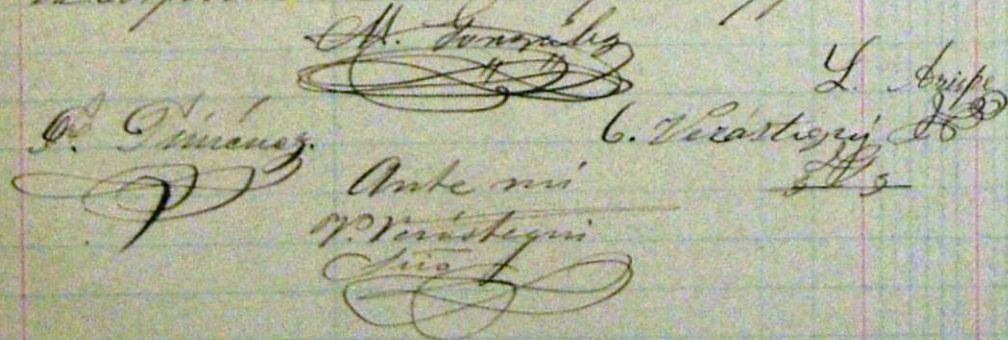 M. Gonzalez
L. Arispe
P. Jiménez.
C. Verástegui
Ante mi
P. Verástegui
Srio